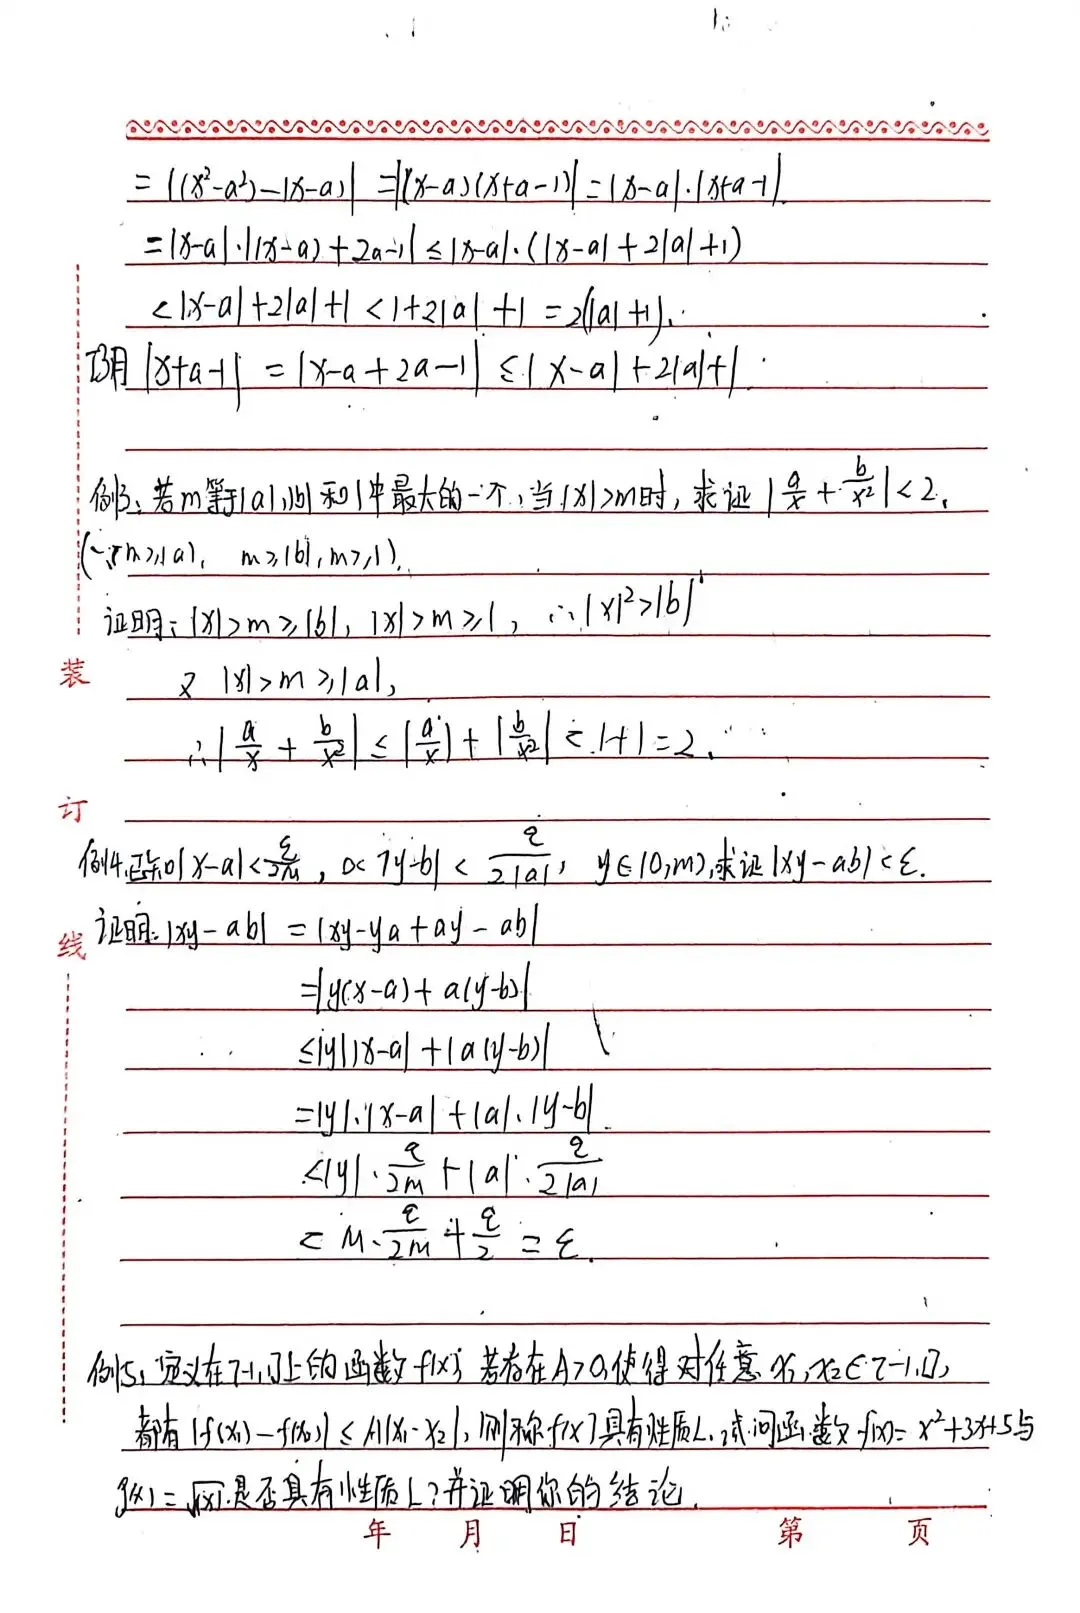 =|(x²-a²)-(x-a)| =|(x-a)(x+a-1)|=|x-a|·|x+a-1|
=|x-a|·|(x-a)+2a-1|≤|x-a|·(|x-a|+2|a|+1)
<|x-a|+2|a|+1<1+2|a|+1=2(|a|+1).
巧用|x+a-1|=|x-a+2a-1|≤|x-a|+2|a|+1.
例3：若m等于|a|,|b|和1中最大的一个,当|x|>m时,求证|a/x+b/x²|<2.
(∵m≥|a|, m≥|b|,m≥1).
证明：|x|>m≥|b|, |x|>m≥1, ∴|x|²>|b|
又 |x|>m≥|a|,
∴|a/x+b/x²|≤|a/x|+|b/x²|<1+1=2.
例4.已知|x-a|<ε/2m, 0<|y-b|<ε/2|a|, y∈(0,m),求证|xy-ab|<ε.
证明:|xy-ab|=|xy-ya+ay-ab|
=|y(x-a)+a(y-b)|
≤|y(x-a|+|a(y-b)|
=|y|·|x-a|+|a|·|y-b|.
<|y|·ε/2m+|a|·ε/2|a|
<M·ε/2m+ε/2=ε.
例5：定义在[-1,1]上的函数f(x),若存在A>0,使得对任意x₁,x₂∈[-1,1],
都有|f(x₁)-f(x₂)|≤A|x₁-x₂|,则称f(x)具有性质L.试问函数f(x)=x²+3x+5与
g(x)=√|x|是否具有性质L?并证明你的结论.
装
订
线
年 月 日 第 页